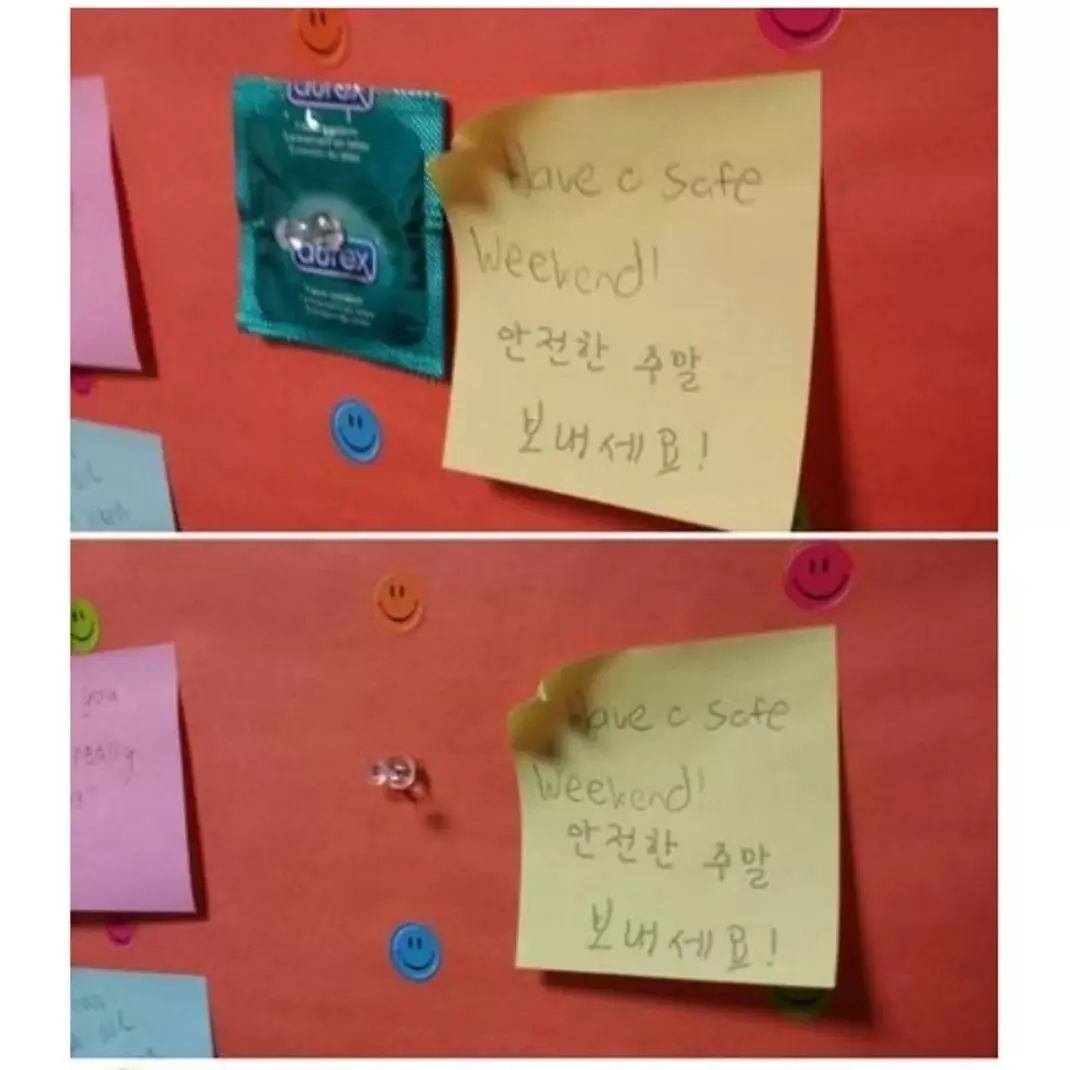 durex
durex
Have a safe
Weekend!
안전한 주말
보내세요!
you
really
Have a safe
Weekend!
안전한 주말
보내세요!